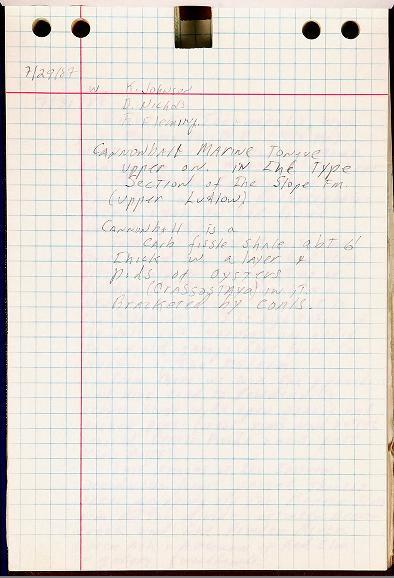 7/29/87
w K. Johnson
D. Nichols
F. Fleming.
Cannonball Marine Tongue
upper on. in the Type
Section of the Slope Fm
(upper Ludlow)
Cannonball is a
carb fissle shale abt 6'
thick w a layer &
pods of oysters
(Crassostrea) in it.
Bracketed by coals.